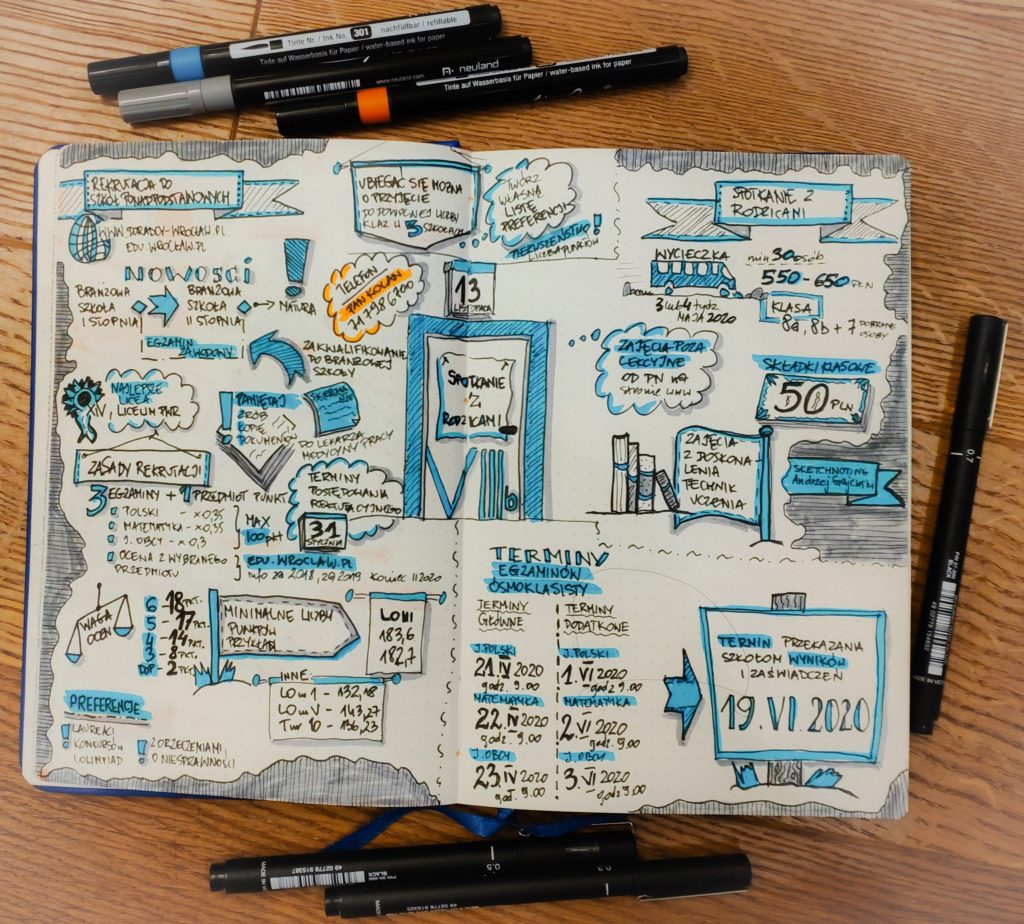 Tinte Nr. / Ink No. 301 nachfüllbar / refillable
Tinte auf Wasserbasis für Papier / water-based ink for paper
www.neuland.com neuland
Tinte auf Wasserbasis für Papier / water-based ink for paper
REKRUTACJA DO
SZKÓŁ PONADPODSTAWOWYCH
WWW.DORADCY-WROCLAW.PL
EDU.WROCLAW.PL
NOWOŚCI
BRANŻOWA
SZKOŁA
I STOPNIA
BRANŻOWA
SZKOŁA
II STOPNIA
MATURA
EGZAMIN
ZAWODOWY
ZAKWALIFIKOWANIE
DO BRANŻOWEJ
SZKOŁY
NAJLEPSZE
LICEA
XIV, LICEUM PWR
PAMIĘTAJ
ZRÓB
KOPIE
DOKUMENTÓW
DO LEKARZA
MEDYCYNY PRACY
UBIEGAĆ SIĘ MOŻNA
O PRZYJĘCIE
DO DOWOLNEJ LICZBY
KLAS W 3 SZKOŁACH
TWÓRZ
WŁASNĄ
LISTĘ
PREFERENCJI
PIERWSZEŃSTWO!
LICZBA PUNKTÓW
TELEFON
PAN KOLAN
71 798 6700
13
LISTOPADA
SPOTKANIE
Z
RODZICAMI
ZASADY REKRUTACJI
3 EGZAMINY + 1 PRZEDMIOT PUNKT
POLSKI - x0,35
MATEMATYKA - x0,35
J. OBCY - x0,3
OCENA Z WYBRANEGO
PRZEDMIOTU
MAX
100 pkt
EDU.WROCLAW.PL
info za 2018, za 2019 koniec II 2020
TERMINY
POSTĘPOWANIA
REKRUTACYJNEGO
31
STYCZNIA
WAGA
OCEN
6 - 18 PKT.
5 - 17 PKT.
4 - 14 PKT.
3 - 8 PKT.
DOP - 2 PKT.
MINIMALNE LICZBY
PUNKTÓW
PRZYKŁAD
183,6
182,7
INNE:
LO nr I - 132,18
LO nr V - 143,27
Tnr 10 - 136,23
PREFERENCJE
! LAUREACI
KONKURSÓW
I OLIMPIAD
! Z ORZECZENIAMI
O NIESPRAWNOŚCI
SPOTKANIE Z
RODZICAMI
WYCIECZKA
3 lub 4 tydz.
MAJA 2020
min 30 osób
550 - 650 PLN
KLASA
8a, 8b + 7 DOBRANE
OSOBY
ZAJĘCIA POZA
LEKCYJNE
OD PN wg
strone www
SKŁADKI KLASOWE
50 PLN
ZAJĘCIA
Z DOSKONA
LENIA
TECHNIK
UCZENIA
SKETCHNOTING
TERMINY
EGZAMINÓW
ÓSMOKLASISTY
TERMINY
GŁÓWNE
J. POLSKI
21.IV 2020
godz. 9.00
MATEMATYKA
22.IV 2020
godz. 9.00
J. OBCY
23.IV 2020
god. 9.00
TERMINY
DODATKOWE
J. POLSKI
1.VI 2020
godz 9.00
MATEMATYKA
2.VI 2020
godz. 9.00
J. OBCY
3.VI 2020
godz 9.00
TERMIN PRZEKAZANIA
SZKOŁOM WYNIKÓW
I ZAŚWIADCZEŃ
19.VI.2020
0.7
BLACK
0.5
BLACK
49 02778 915387
0.3
49 02778 915325